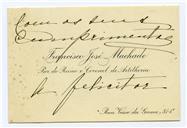 Com os seus
Cumprimentos
Francisco José Machado
Par do Reino e Coronel de Artilheria
a felicitar
Rua Vasco da Gama,